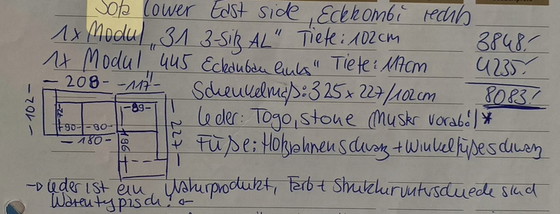 Sofa lower East side, Eckkombi rechts
1x Modul "31 3-Sitz AL" Tiefe: 102cm 3848.-
1x Modul "445 Eckanbau links" Tiefe: 117cm 4235.-
Schenkelmaß: 325 x 227/102cm 8083.-
Leder: Togo, stone (Muster vorab!) *
Füße: Holzrahmen schwarz + Winkelfüße schwarz
- 208 - - 117 -
- 102 -
- 89 -
- 90 - - 90 -
- 180 -
196
- 227 -
→ Leder ist ein Naturprodukt, Farb + Strukturunterschiede sind
Warentypisch! ←